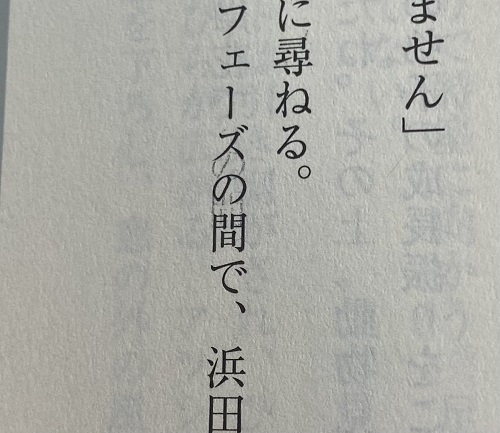 ません」
に尋ねる。
フェーズの間で、浜田